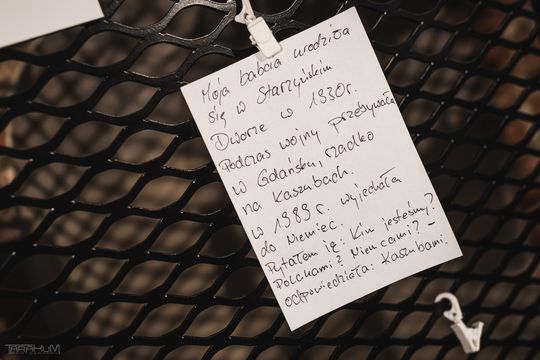 Moja babcia urodziła
się w Starzyńskim
Dworze w 1930r.
Podczas wojny przebywała
w Gdańsku, rzadko
na Kaszubach.
w 1989 r. wyjechała
do Niemiec.
Pytałem ją: Kim jesteśmy?
Polakami? Niemcami? -
odpowiedziała: Kaszubami.
TARAKUM